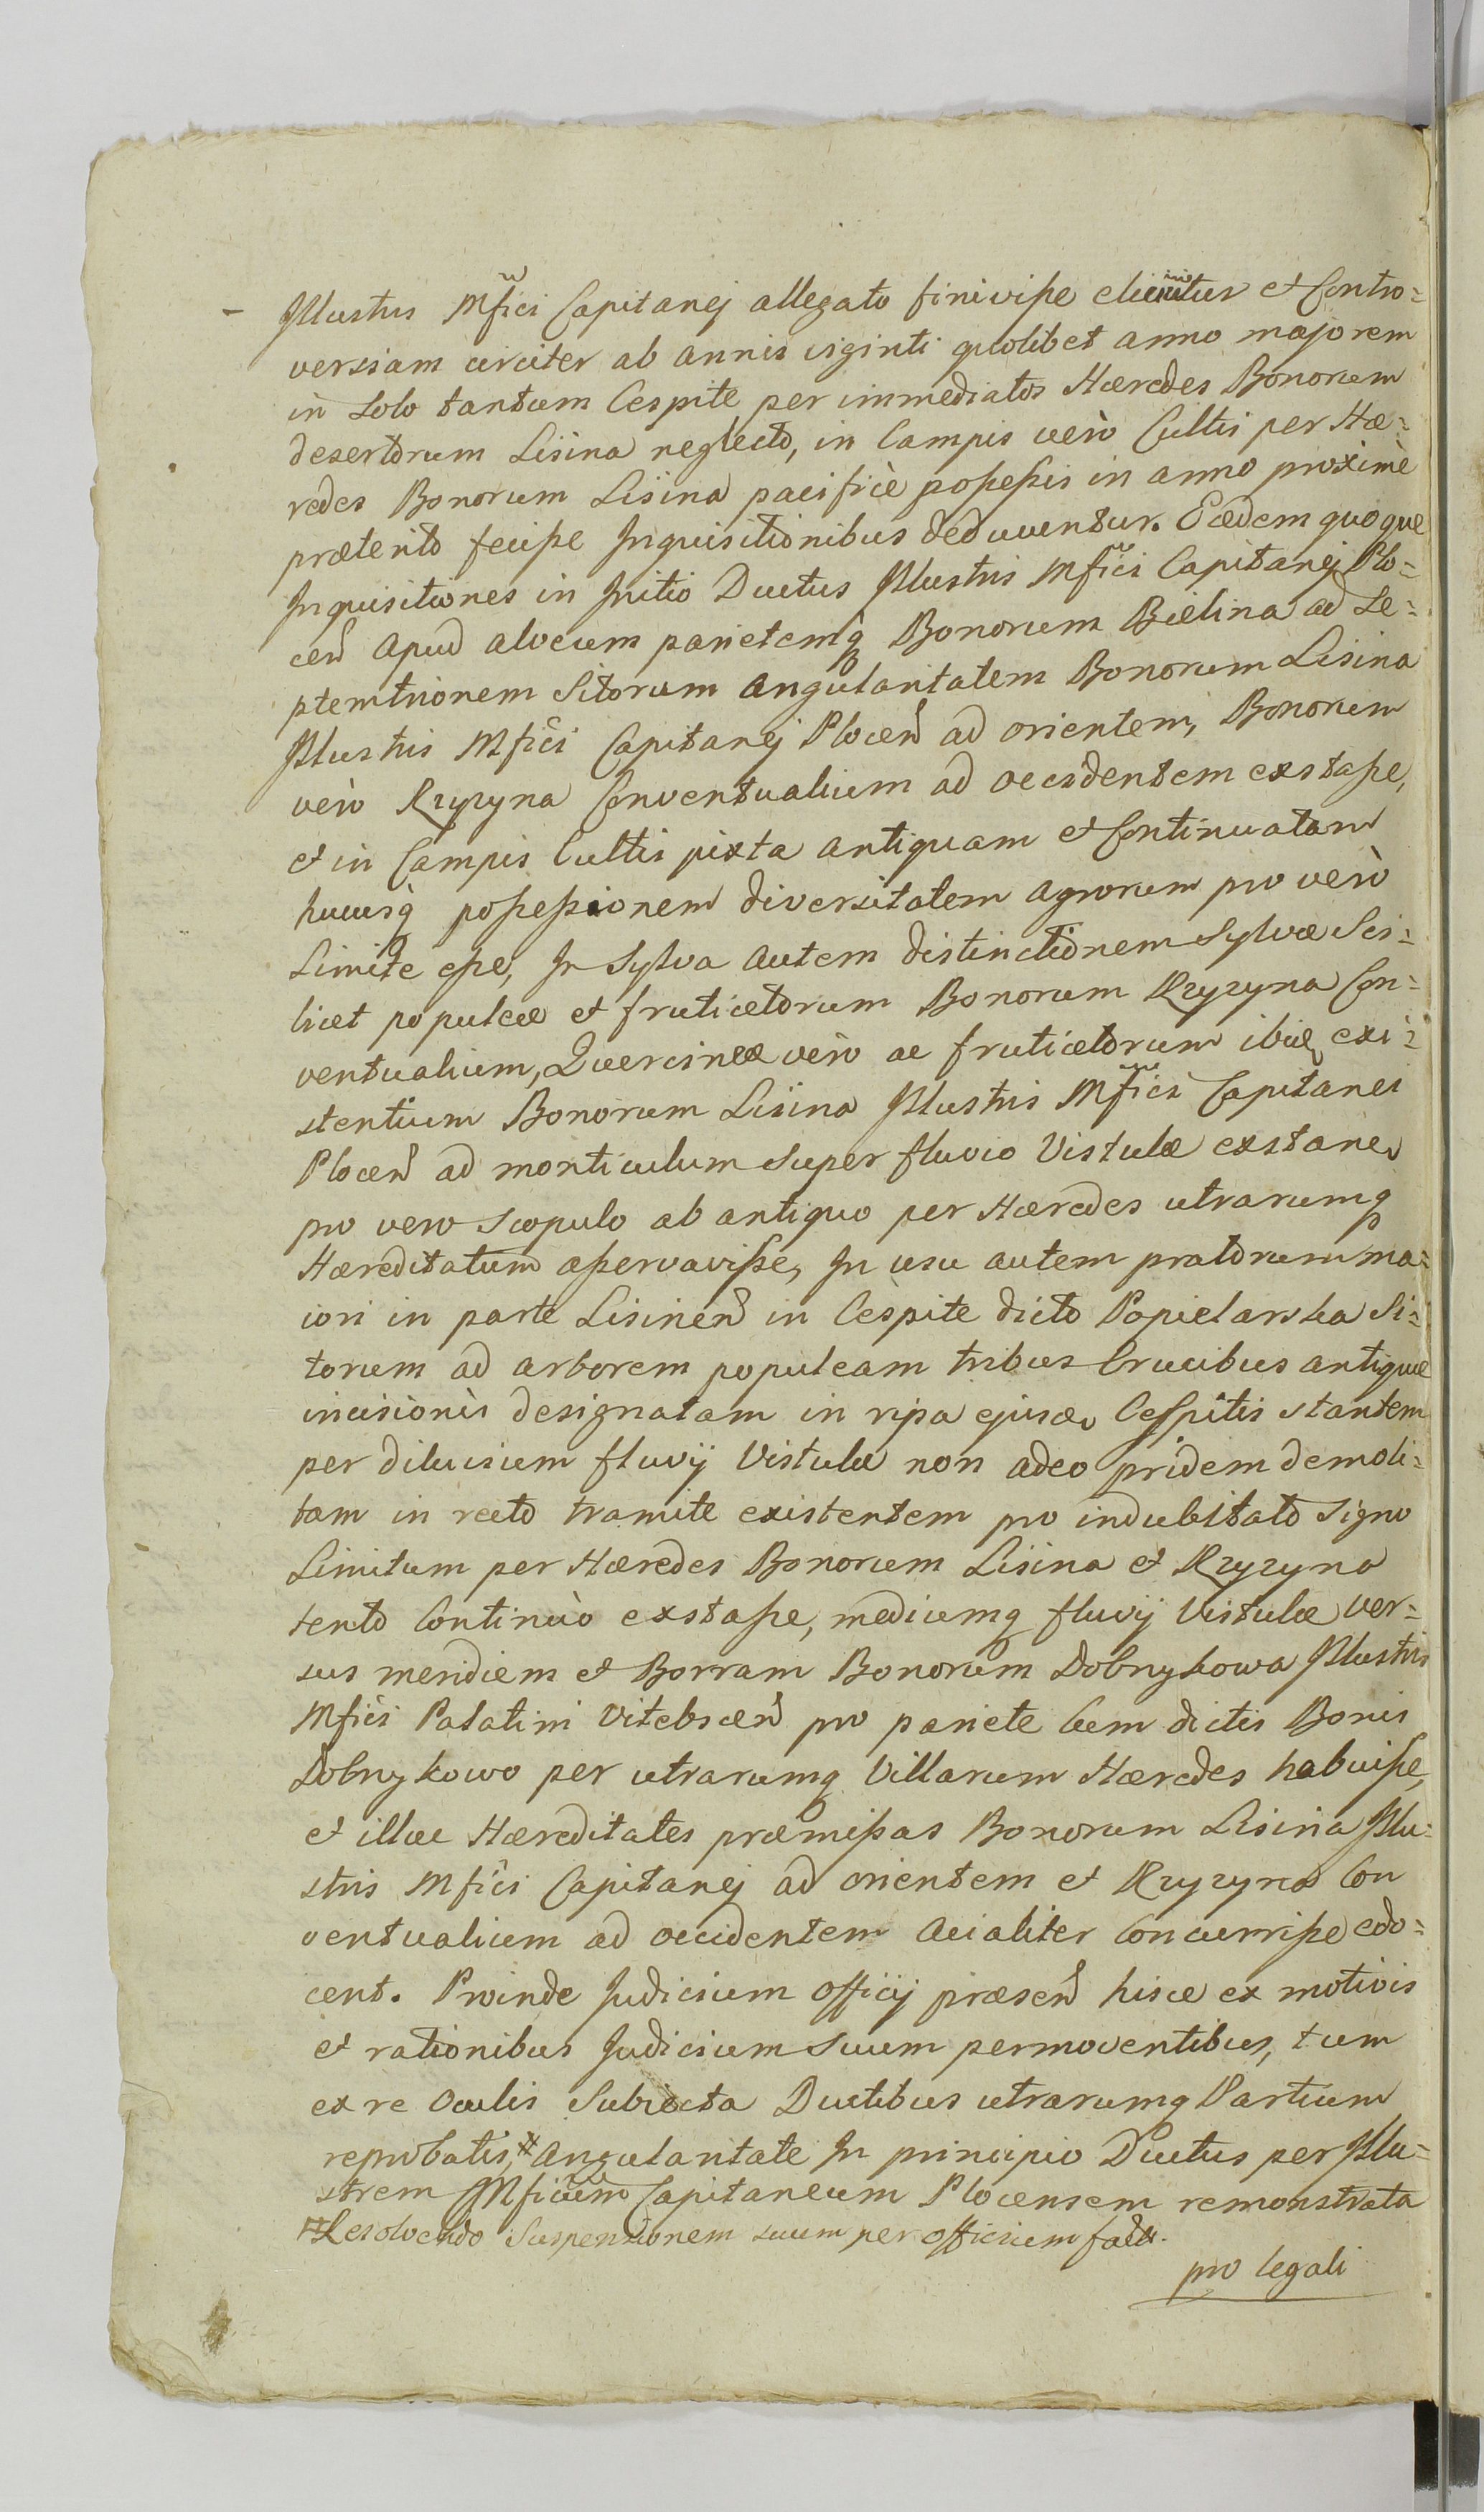 Illustris Mfici Capitanej allegato finivisse elicitur et Contro=
versiam circiter ab annis viginti quolibet anno majorem
in solo tantum Cespite per immediatos Hæredes Bonorum
desertorum Lisina neglecto, in Campis verò Cultis per Hæ=
redes Bonorum Lisina pacificè possessis in anno proximè
præterito fecisse Inquisitionibus deducuntur. Eædem quoque
Inquisitiones in Initio Ductus Illustris Mfici Capitanej Plo=
cen̄ apud alveum parietemq̨ Bonorum Bielina ad Se=
ptemtrionem Sitorum angularitatem Bonorum Lisina
Illustris Mfici Capitanej Plocen̄ ad orientem, Bonorum
verò Kzyzyna Conventualium ad occidentem exstasse,
et in Campis Cultis juxta antiquam et Continuatam
hucusq̨ possessionem diversitatem agrorum pro verò
Limite esse, In Sylva autem distinctionem Sylvæ Sci=
licet populeæ et fruticetorum Bonorum Kzyzyna Con=
ventualium, Quercineæ verò ac fruticetorum ibidē exi=
stentium Bonorum Lisina Illustris Mfici Capitanei
Plocen̄ ad monticulum super fluvio Vistulæ exstaneш
pro vero scopulo ab antiquo per Hæredes utrarumq̨
Hæreditatum asservavisse, In usu autem pratorum ma=
iori in parte Lisinen̄ in Cespite dicto Popielarska Si=
torum ad arborem populeam tribus Crucibus antiquæ
incisionis designatam in ripa ejusdē Cespitis stantem
per diluvium fluvij Vistulæ non adeo pridem demoli=
tam in recto tramite existentem pro indubitato signo
Limitum per Hæredes Bonorum Lisina et Kzyzyna
tento Continuò exstasse, mediumq̨ fluvij Vistulæ ver=
sus meridiem et Borram Bonorum Dobrzykowa Illustris
Mfici Palatini Vitebscen̄ pro pariete Cum dictis Bonis
Dobrzykowo per utrarumq̨ Villarum Hæredes habuisse,
et illæ Hæreditates præmissas Bonorum Lisina Illu=
stris Mfici Capitanej ad orientem et Kzyzyna Con
ventualium ad occidentem Acialiter Concurrisse edo=
cent. Proinde Judicium Officij præsen̄ hisce ex motivis
et rationibus Judicium suum permoventibus, tum
ex re Oculis Subiecta Ductibus utrarumq̨ Partium
reprobatis, # Angularitate In principio Ductus per Illu=
strem Mficum Capitaneum Plocensem remonstrata
# Resolvendo Suspensionem suum per officium
pro legali